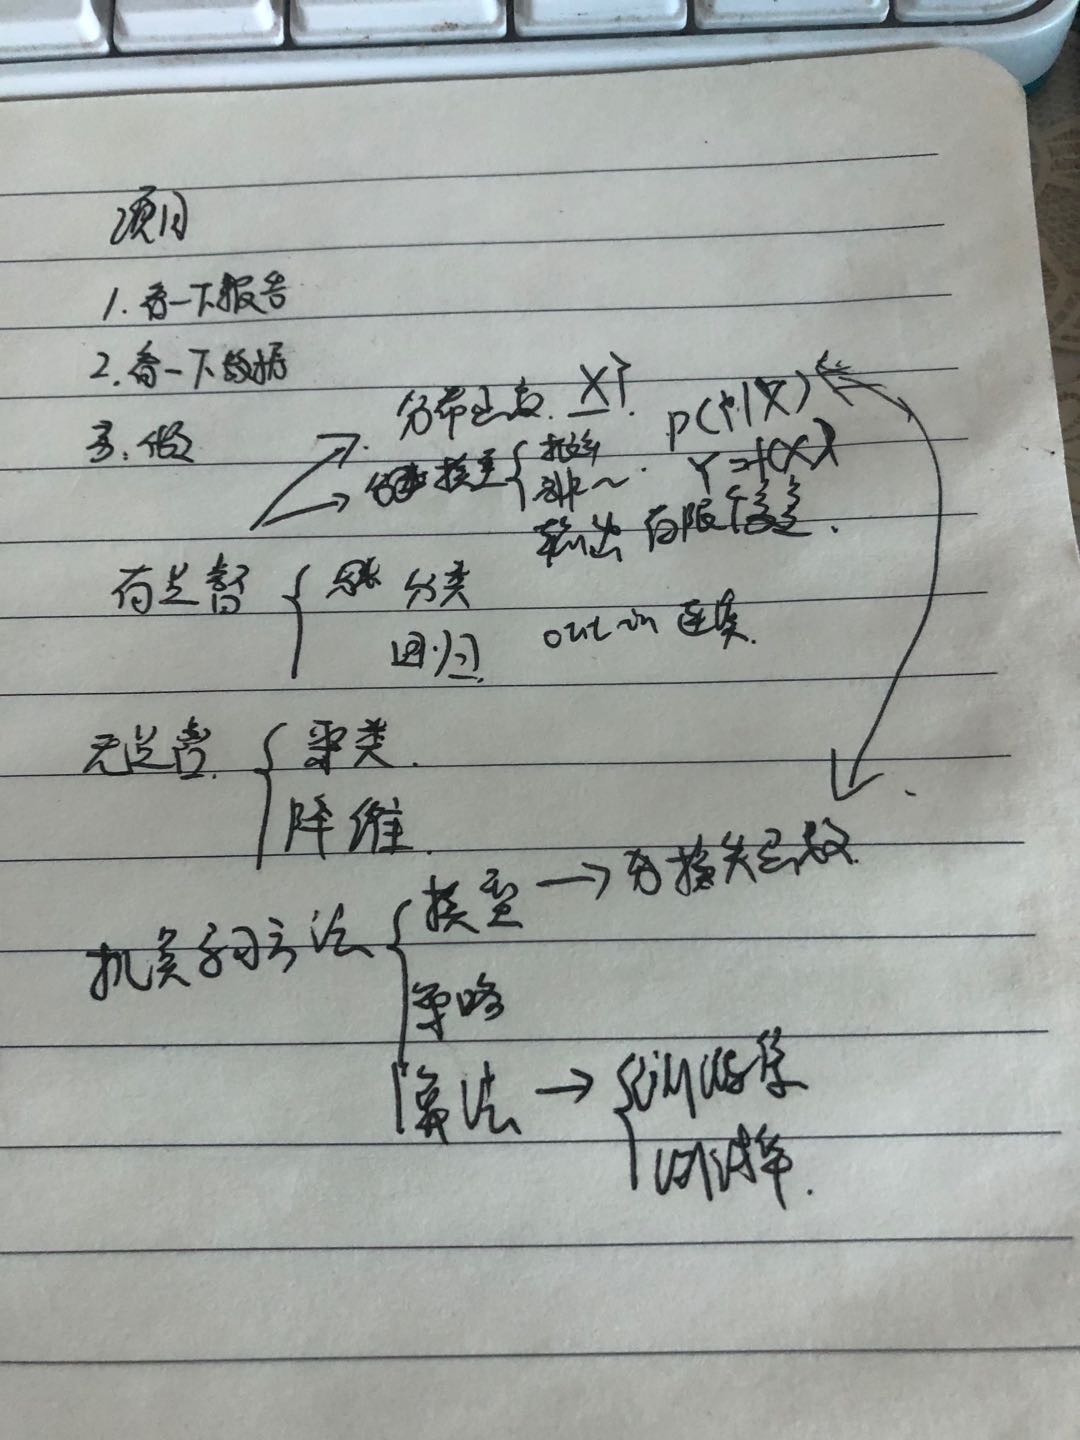 项目
1. 看一下报告
2. 看一下数据
3. 做
分布 X Y
模型 { 概率 P(Y|X)
非~ Y=f(X)
输出 有限
有监督 { 分类
回归 out in 连续
无监督 { 聚类
降维
机器学习方法 { 模型 → 损失函数
策略
算法 →